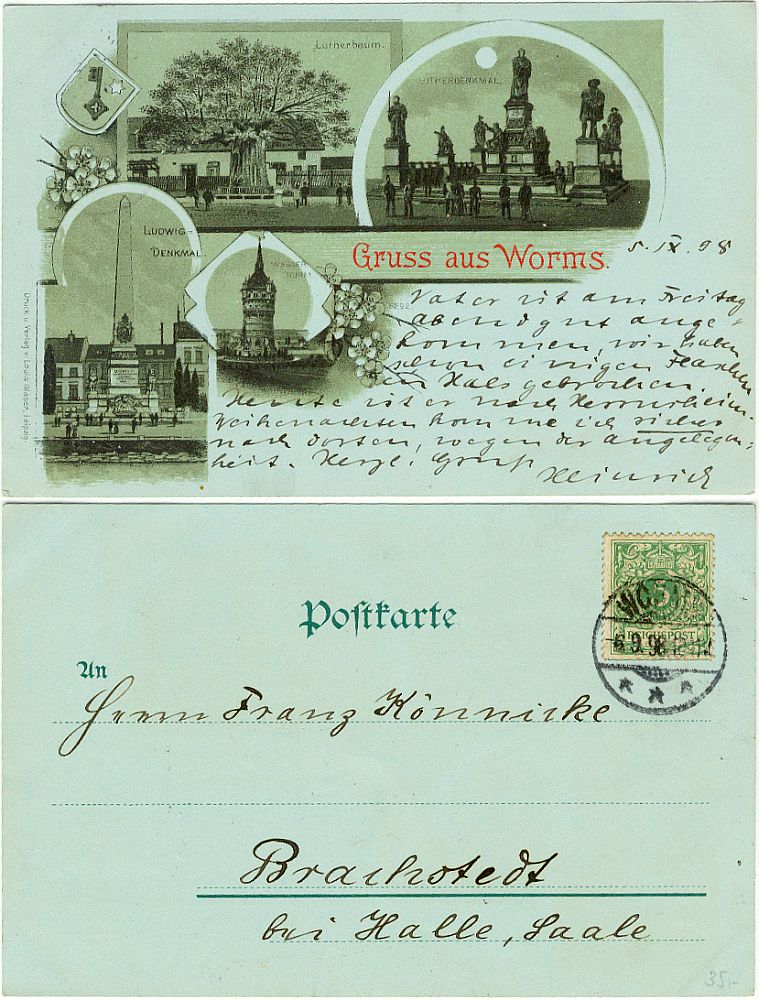 Lutherbaum.
LUTHERDENKMAL.
LUDWIG-
DENKMAL.
WASSER-
TURM.
Gruss aus Worms.
5. IX. 98
Vater ist am Freitag
abend gut ange-
kommen, wir haben
schon einigen Flaschen
den Hals gebrochen.
Heute ist er nach Herrnsheim.
Weihenachten komme ich sicher
nach dorten, wegen der Angelegen-
heit. Herzl. Gruß
Heinrich
Druck u. Verlag v. Louis Glaser, Leipzig
Postkarte
5
REICHSPOST
WORMS
6.9.98
An
Herrn Franz Könnicke
Brachstedt
bei Halle, Saale
35,-